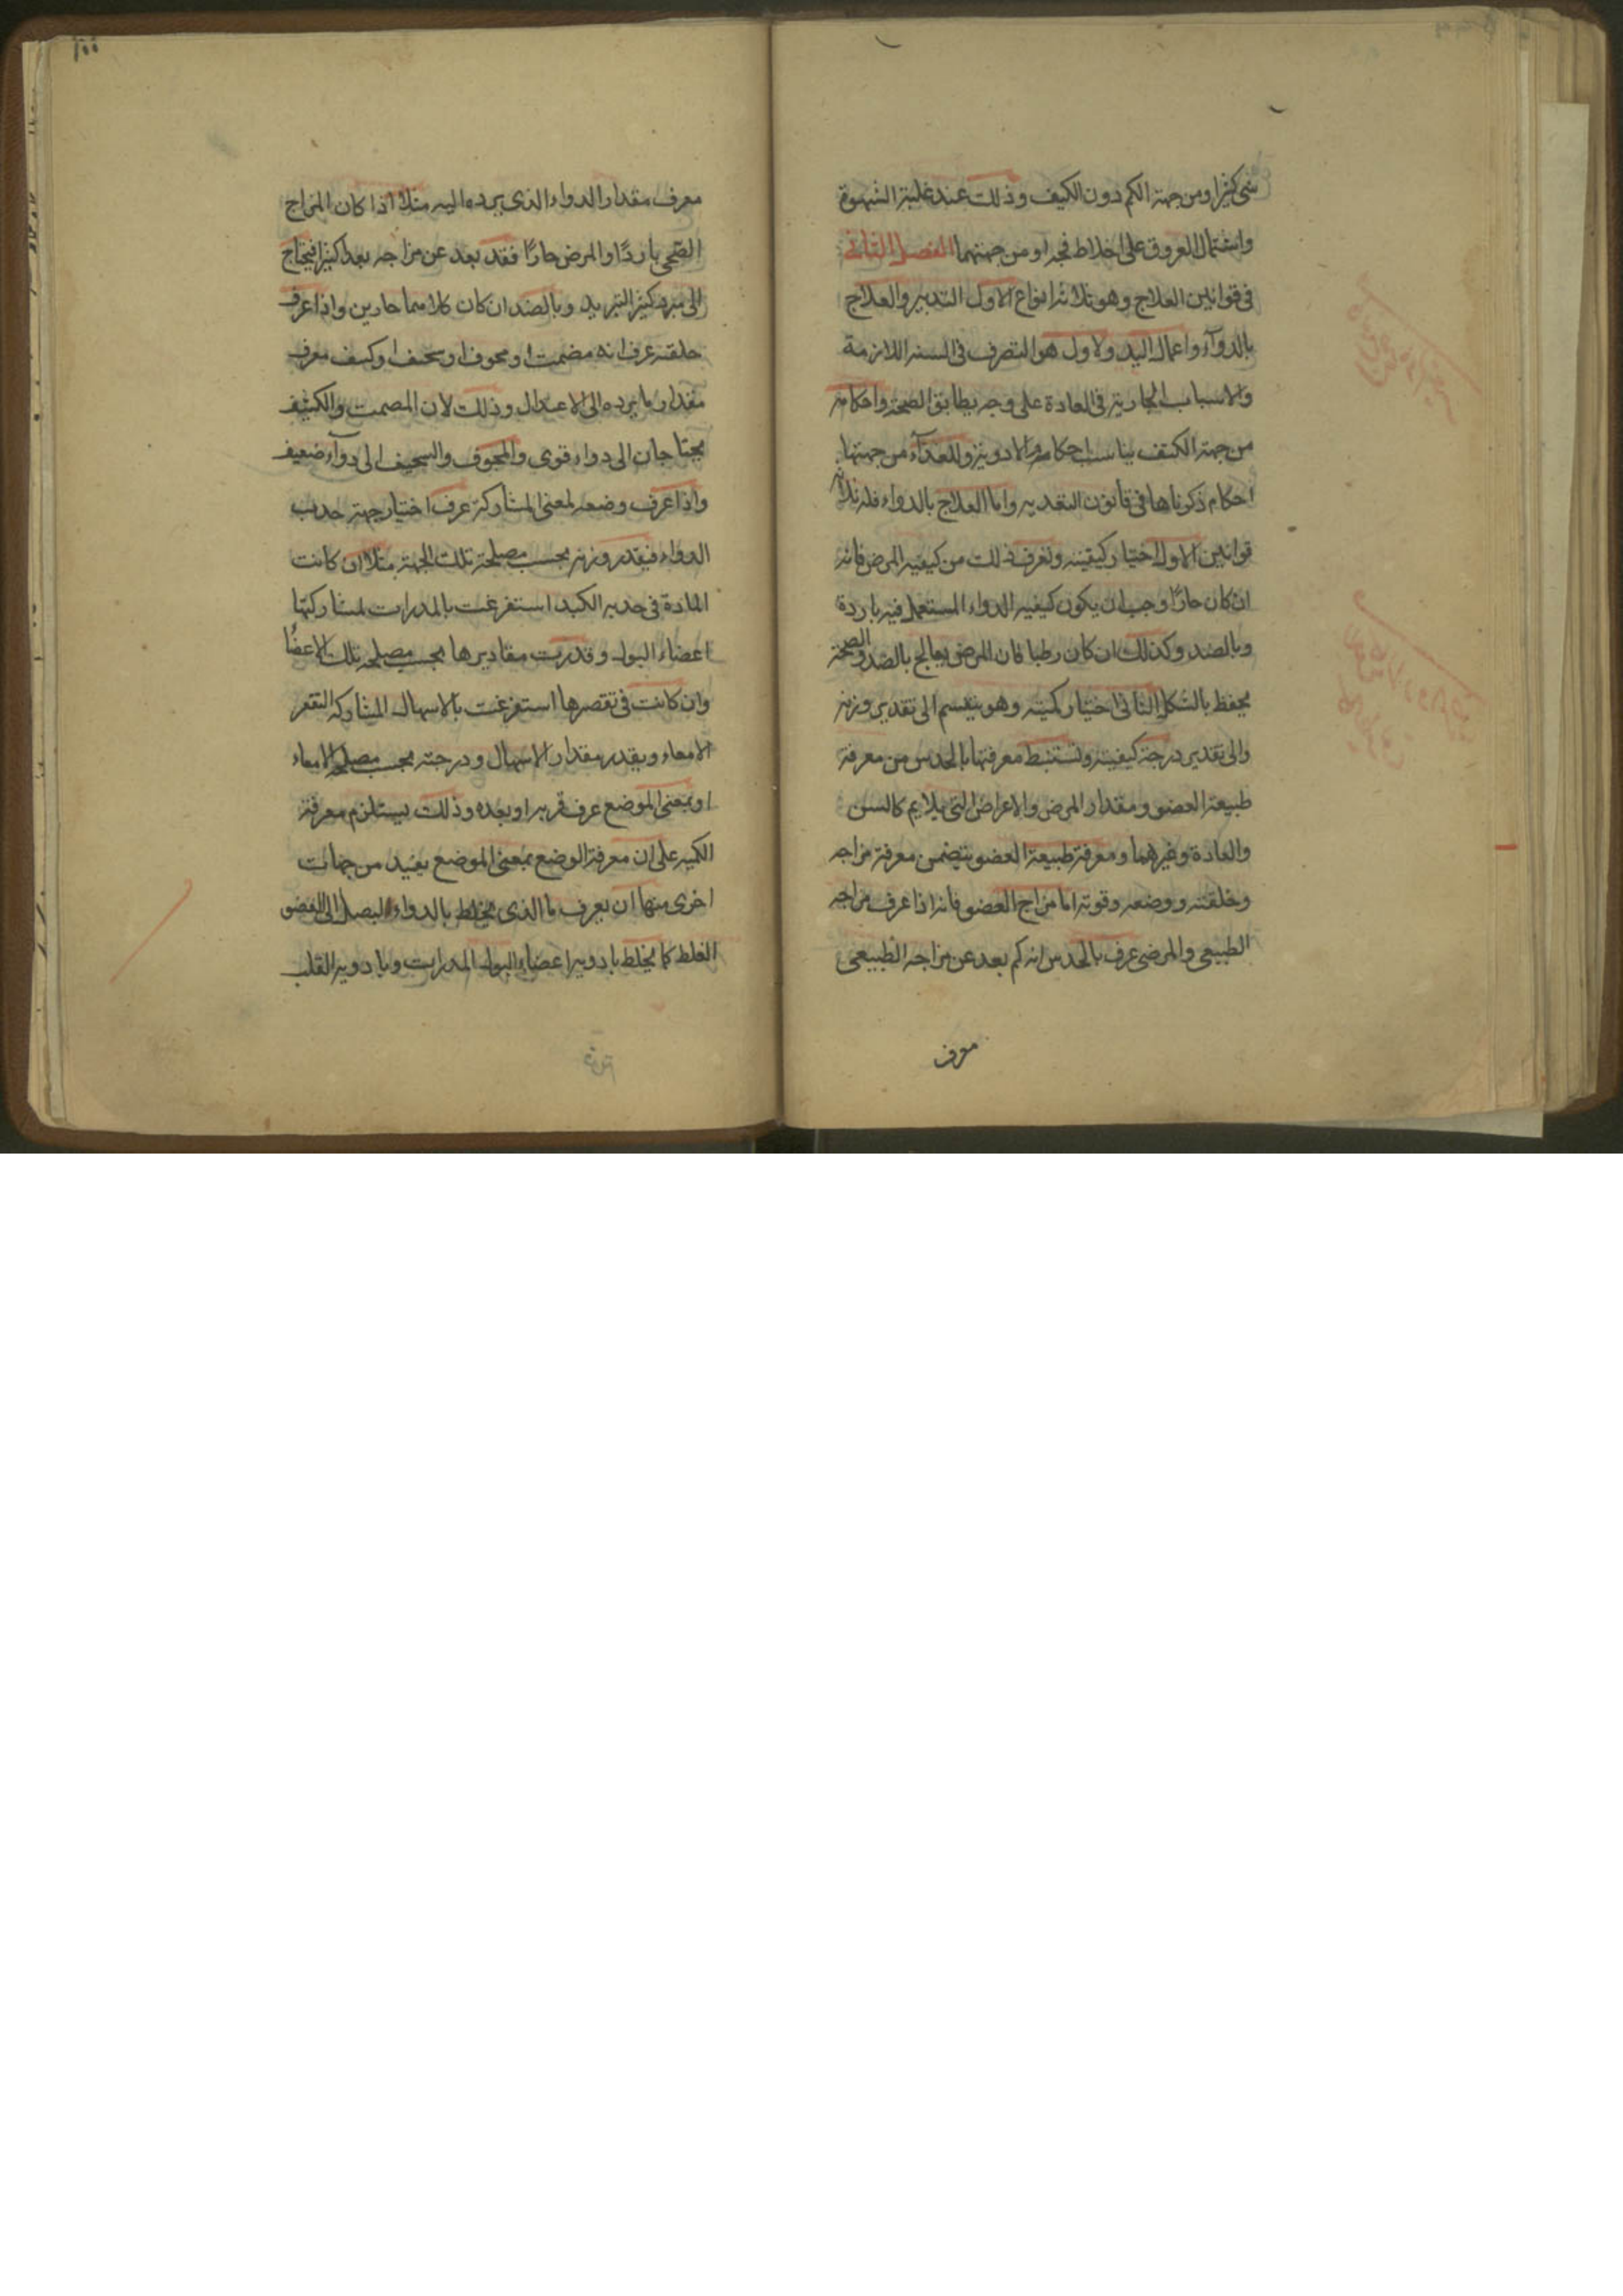 شئ كثيرا ومن جهة الكم دون الكيف وذلك عند غلبة الشهوة
واشتمال العروق على اخلاط فجه او من جهتهما الفصل الثانى
فى قوانين العلاج وهو ثلاثة انواع الاول التدبير والعلاج
بالدوآء واعمال اليد والاول هو التصرف فى الستة اللازمة
والاسباب الجارية فى العادة على وجه يطابق الصحة واحكامه
من جهة الكيف يناسب احكام الادوية وللغذآء من جهتها
احكام ذكرناها فى قانون التغديه واما العلاج بالدواء فله ثلاثة
قوانين الاول اختيار كيفيته وتعرف ذلك من كيفيه المرض فانه
ان كان حارًا وجب ان يكون كيفيه الدواء المستعمل فيه باردة
وبالضد وكذلك ان كان رطبا فان المرض يعالج بالضد والصحة
يحفظ بالشكل الثانى اختيار كميته وهو ينقسم الى تقدير وزنه
والى تقدير درجة كيفيته وتستنبط معرفتها بالحدس من معرفة
طبيعة العضو ومقدار المرض والاعراض التى يلايم كالسن
والعادة وغيرهما ومعرفة طبيعة العضو يتضمن معرفة مزاجه
وخلقته ووضعه وقوته اما مزاج العضو فانه اذا عرف مزاجه
الطبيعى والمرضى عرف بالحدس انه كم بعد عن مزاجه الطبيعى
معرف
معرف مقدار الدواء الذى يرده اليه مثلا اذا كان المزاج
الصحى باردًا والمرض حارًا فقد بعد عن مزاجه بعدا كثيرا فيحتاج
الى مبرد كثير التبريد وبالضد ان كان كلاهما حارين واذا عرف
خلقته عرف انه مصمت او مجوف او سخيف او كثيف معرف
مقدار ما يرده الى الاعتدال وذلك لان المصمت والكثيف
يحتاجان الى دواء قوى والمجوف والسخيف الى دوآء ضعيف
واذا عرف وضعه لمعنى المشاركة عرف اختيار جهة جذب
الدواء فيقدر وزنه بحسب مصلحة تلك الجهة مثلا ان كانت
المادة فى حدبه الكبد استفرغت بالمدرات لمشاركتها
اعضاء البول وقدرت مقاديرها بحسب مصلحه تلك الاعضا
وان كانت فى تقعرها استفرغت بالاسهال المشاركه التقعر
الامعاء ويقدر مقدار الاسهال ودرجته بحسب مصلحة الامعاء
او بمعنى الموضع عرف قربه او بعده وذلك يستلزم معرفة
الكميه على ان معرفة الوضع بمعنى الموضع يفيد من جهات
اخرى منها ان يعرف ما الذى يخلط بالدواء ليصل الى العضو
الغلط كما يخلط بادويه اعضاء البول المدرات وبادويه القلب